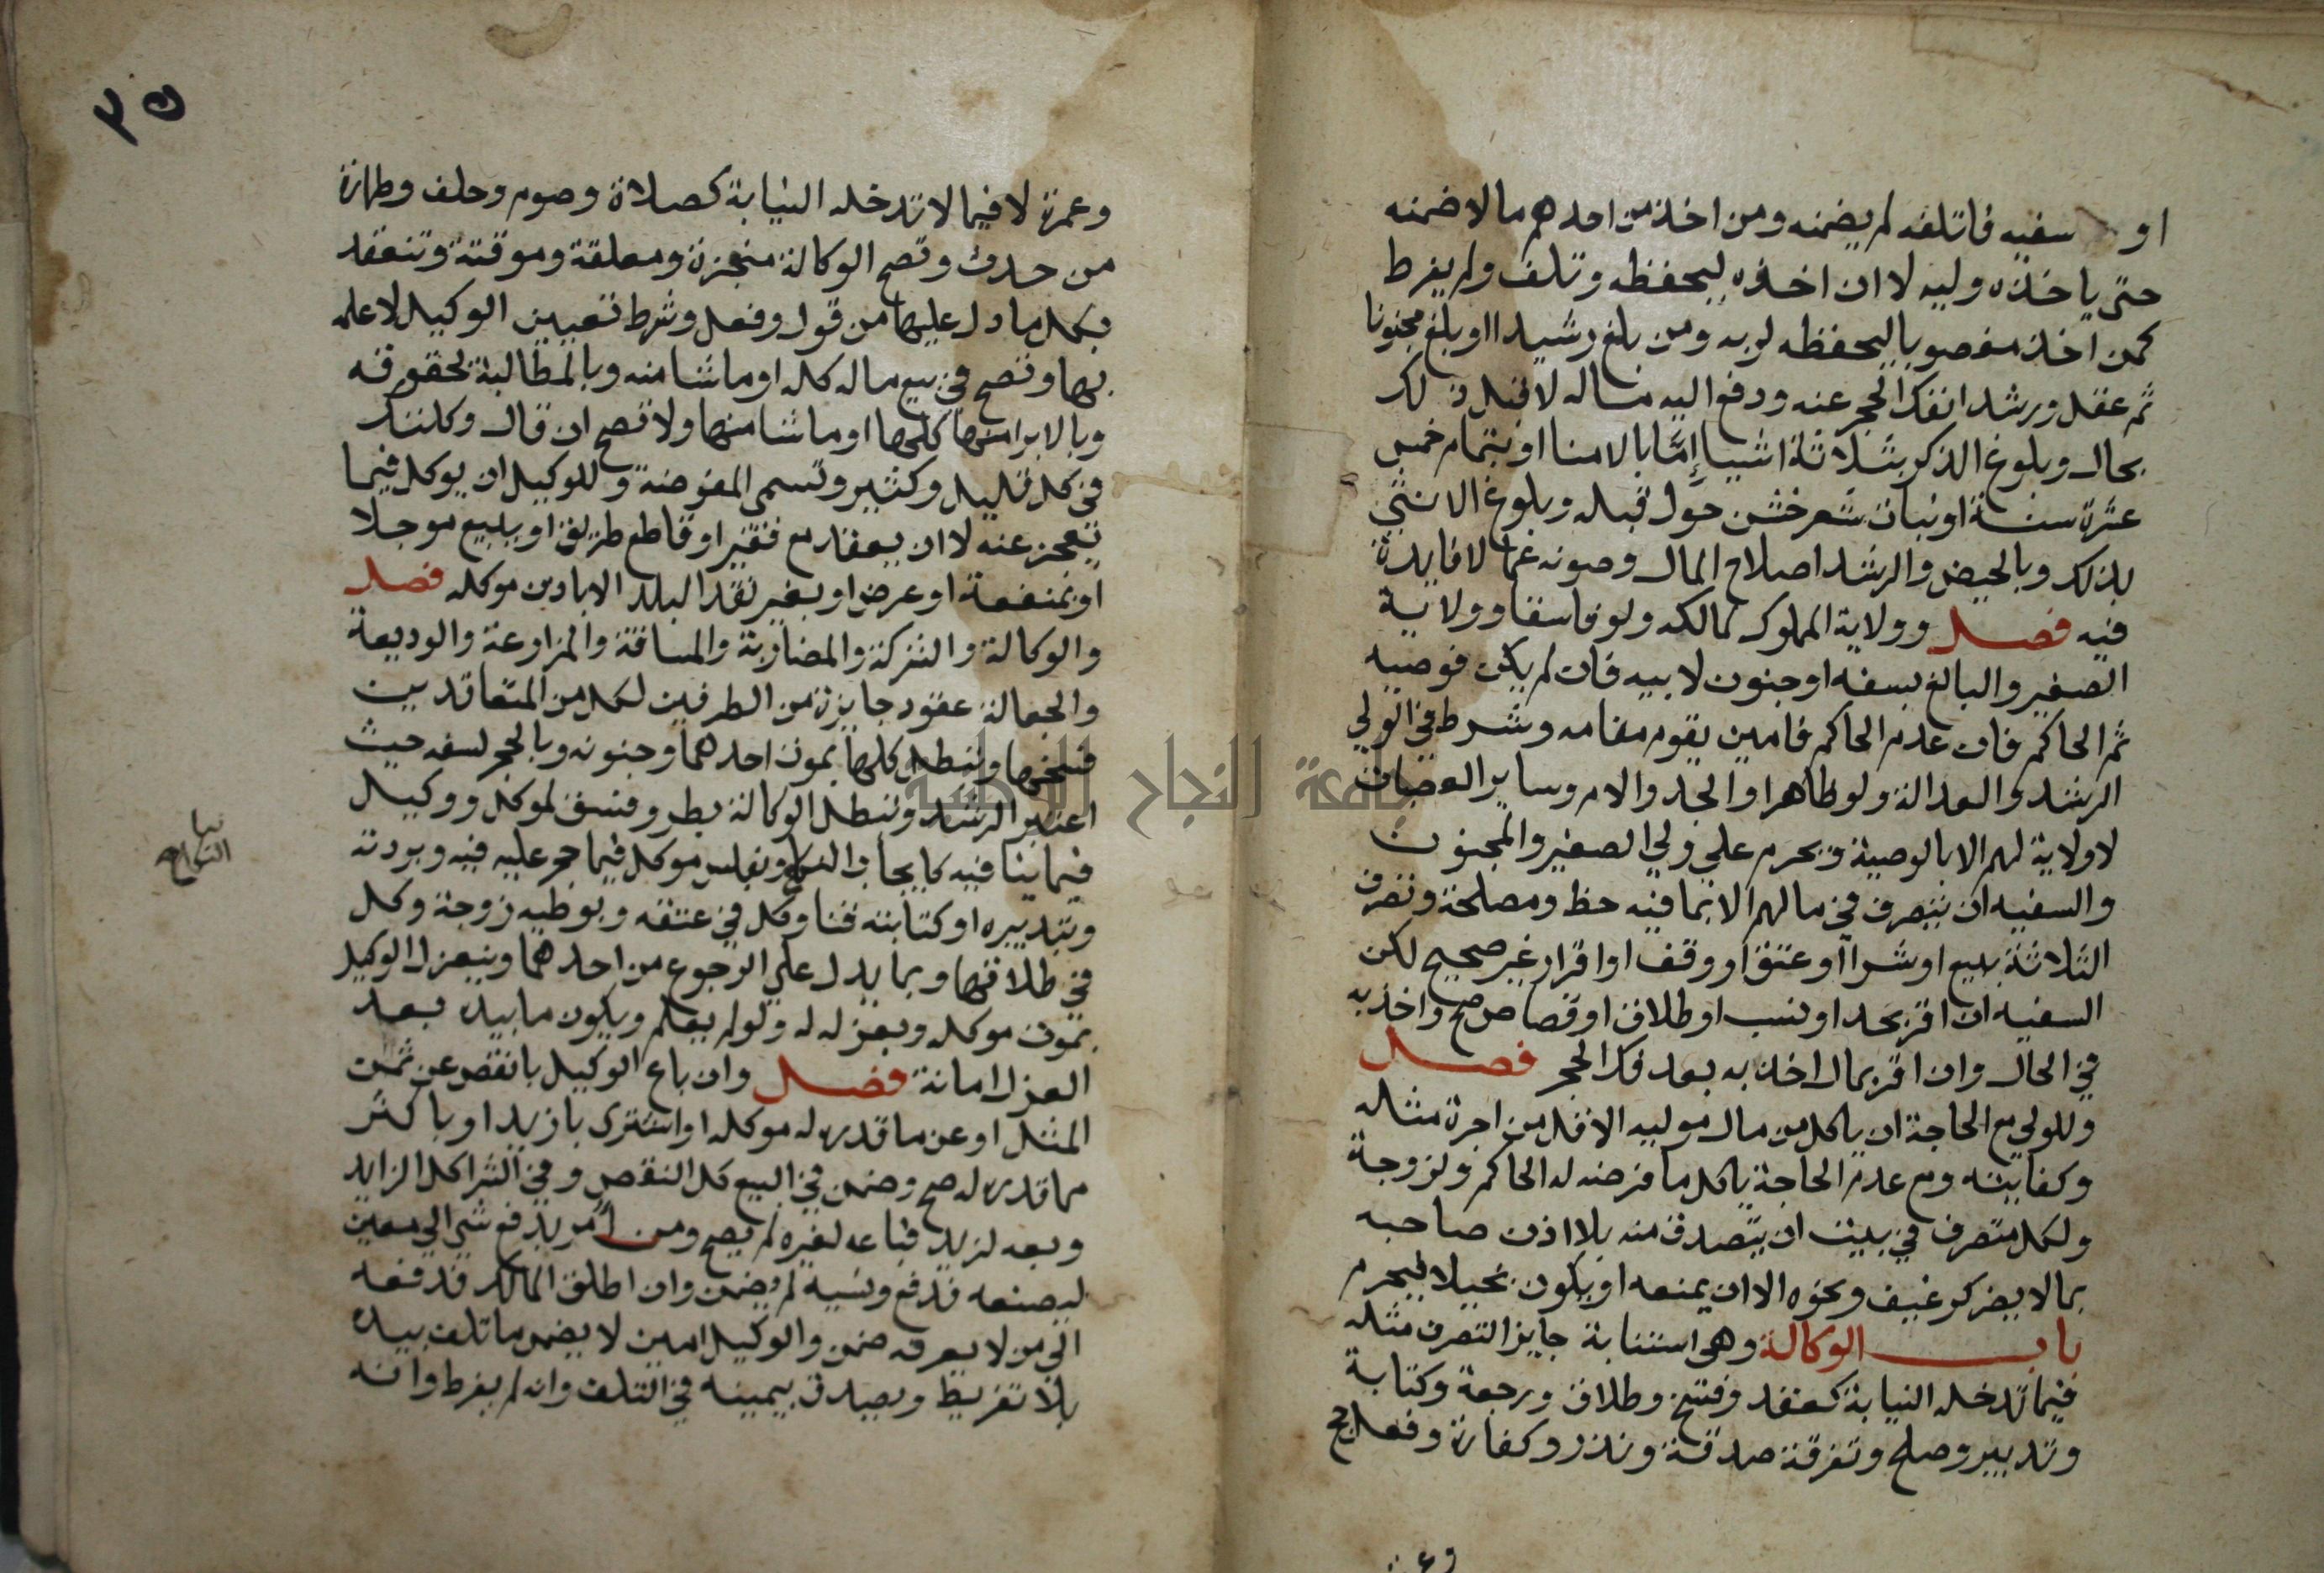 او سفيه فاتلفه لم يضمنه ومن اخذ من احدهم مالا ضمنه
حتى ياخذه وليه لا ان اخذه ليحفظه وتلف ولم يفرط
كمن اخذ مغصوبا ليحفظه لربه ومن بلغ رشيدا او بلغ مجنونا
ثم عقل ورشد انفك الحجر عنه ودفع اليه ماله لا قبل ذلك
بحال وبلوغ الذكر بثلاثة اشيا إمّا بالامنا او بتمام خمس
عشرة سنة او نبات شعر خشن حول قبله وبلوغ الانثي
بذلك وبالحيض والرشد اصلاح المال وصونه عما لا فايدة
فيه فصل وولاية المملوك لمالكه ولو فاسقا وولاية
الصغير والبالغ بسفه او جنون لابيه فان لم يكن فوصيه
ثم الحاكم فان عدم الحاكم فامين يقوم مقامه وشرط في الولي
الرشد والعدالة ولو ظاهرا والجد والام وساير العصبات
لا ولاية لهم الا بالوصية ويحرم علي ولي الصغير والمجنون
والسفيه ان يتصرف في مالهم الا بما فيه حظ ومصلحة وتصرف
الثلاثة ببيع او شرا او عتق او وقف او اقرار غير صحيح لكن
السفيه ان اقر بحد او نسب او طلاق او قصاص صح واخذ به
في الحال وان اقر بمال اخذ به بعد فك الحجر فصل
وللولي مع الحاجة ان ياكل من مال موليه الاقل من اجرة مثله
وكفايته ومع عدم الحاجة ياكل ما فرضه له الحاكم ولزوجة
ولكل متصرف في بيت ان يتصدق منه بلا اذن صاحبه
بما لا يضر كرغيف ونحوه الا ان يمنعه او يكون بخيلا فيحرم
باب الوكالة وهي استنابة جايز التصرف مثله
فيما تدخله النيابة كعقد وفسخ وطلاق ورجعة وكتابة
وتدبير وصلح وتفرقة صدقة ونذر وكفارة وفعل حج
وعمرة
٣٥
وعمرة لا فيما لا تدخله النيابة كصلاة وصوم وحلف وطهارة
من حدث وتصح الوكالة منجزة ومعلقة وموقتة وتنعقد
بكل ما دل عليها من قول وفعل وشرط تعيين الوكيل لا علمه
بها وتصح في بيع ماله كله او ما شا منه وبالمطالبة بحقوقه
وبالابرا منها كلها او ما شا منها ولا تصح ان قال وكلتك
في كل قليل وكثير وتسمى المفوضة وللوكيل ان يوكل فيما
يعجز عنه لا ان يعقد مع فقير او قاطع طريق او يبيع موجلا
او بمنفعة او عرض او بغير نقد البلد الا باذن موكله فصل
والوكالة والشركة والمضاربة والمساقة والمزاوعة والوديعة
والجعالة عقود جايزة من الطرفين لكل من المتعاقدين
فسخها وتبطل كلها بموت احدهما وجنونه وبالحجر لسفه حيث
اعتبر الرشد وتبطل الوكالة بطرو فسق لموكل ووكيل
فيما ينافيه كايجاب النكاح وبفلس موكل فيما حجر عليه فيه وبردته
وبتدبيره او كتابته قنا وكل في عتقه وبوطيه زوجة وكل
في طلاقها وبما يدل علي الرجوع من احدهما وينعزل الوكيل
بموت موكله وبعزله له ولو لم يعلم ويكون ما بيده بعد
العزل امانة فصل وان باع الوكيل بانقص عن ثمن
المثل او عن ما قدره له موكله او اشترى بازيد او باكثر
مما قدره له صح وضمن في البيع كل النقص وفي الشرا كل الزايد
وبعه لزيد فباعه لغيره لم يصح ومن امر بدفع شي الي معين
ليصنعه فدفع ونسيه لم يضمن وان اطلق المالك فدفعه
الي من لا يعرفه ضمن والوكيل امين لا يضمن ما تلف بيده
بلا تفريط ويصدق بيمينه في التلف وانه لم يفرط وانه
جامعة النجاح الوطنية